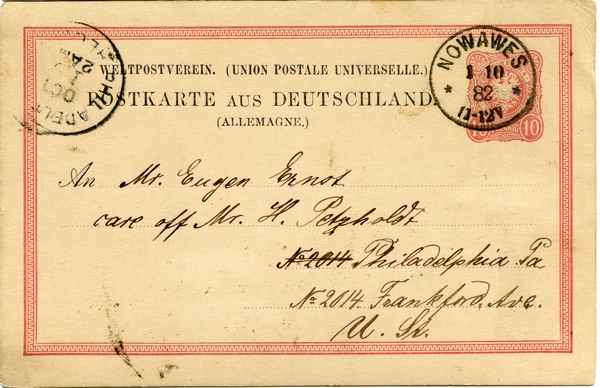 WELTPOSTVEREIN. (UNION POSTALE UNIVERSELLE.)
POSTKARTE AUS DEUTSCHLAND.
(ALLEMAGNE.)
NOWAWES
1 10
82
11-12V
10 10
PHILADELPHIA
OCT
2 AM
An Mr. Eugen Ernst
care off Mr. H. Petzholdt
No 2014 Philadelphia Pa
No 2014 Frankford. Ave.
U. St.